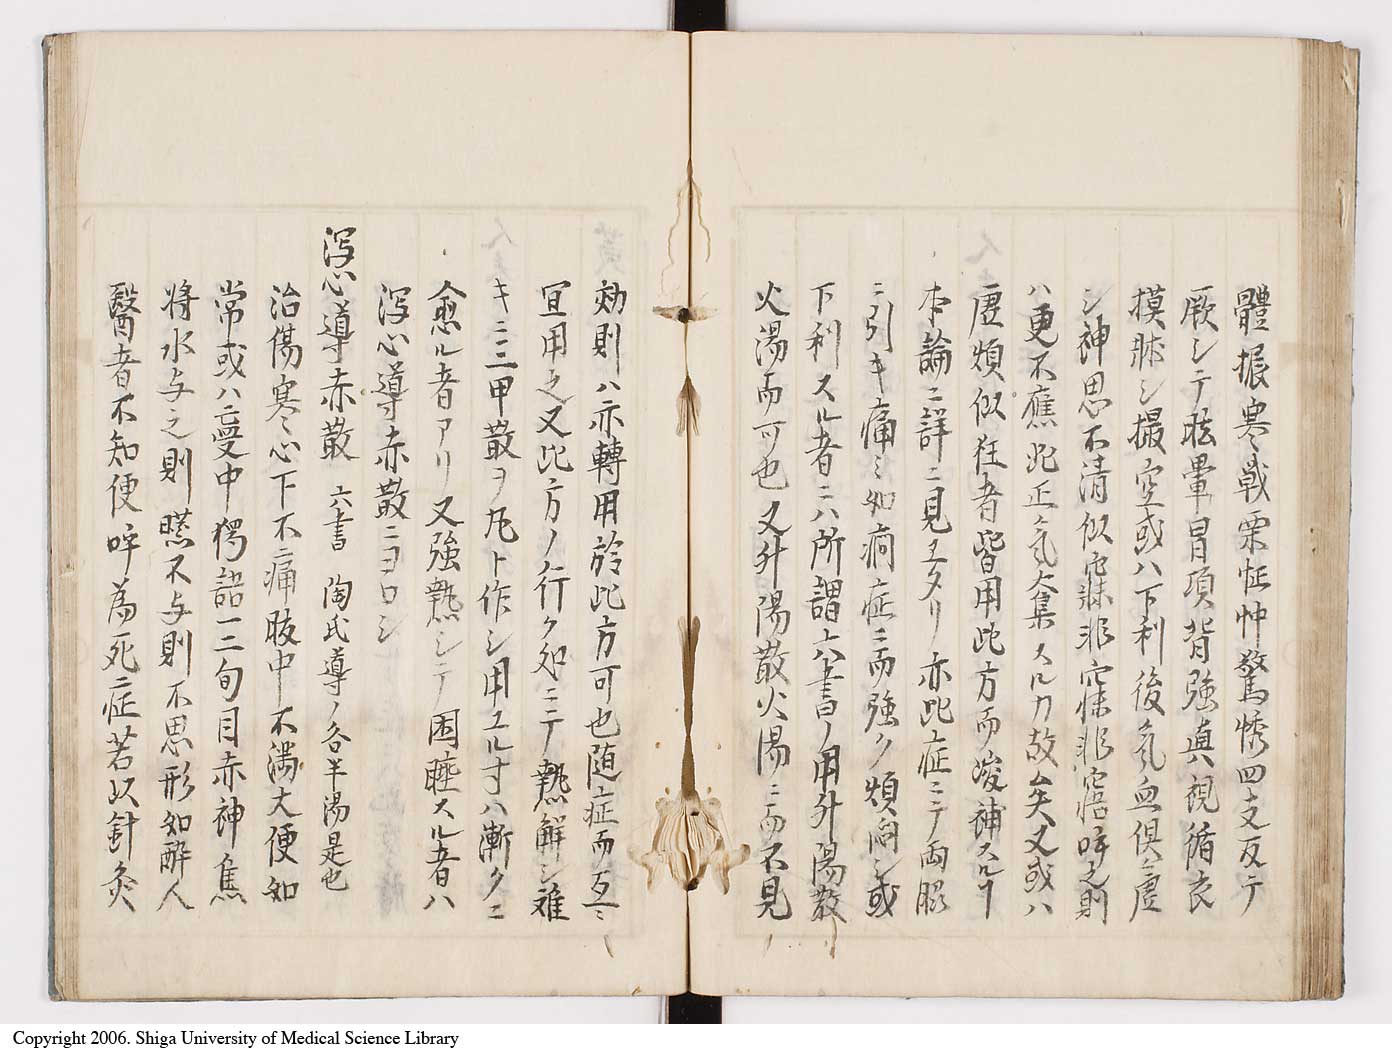 體振寒戦栗怔忡驚悸四支反テ
厥シテ眩暈冒項背強直視循衣
摸牀シ撮空或ハ下利後気血倶ニ虚
シ神思不清似寐非寐似寤非寤呼之則
ハ更不應此正気奪スルカ故矣又或ハ
虚煩似狂者皆用此方而峻補スルヿ
本論ニ詳ニ見ヱタリ亦此症ニテ両脚
ニ引キ痛ミ如痼症ニ而強ク煩悶シ或
下利スル者ニハ所謂六書ノ用升陽散
火湯而可也又升陽散火湯ニ而不見
効則ハ亦轉用於此方可也随症而互ニ
宜用之又此方ノ行ク処ニテ熱解シ難
キニ三甲散ヲ丸ト作シ用ユル寸ハ漸クニ
愈ル者アリ又強熱シテ困睡スル者ハ
瀉心導赤散ニヨロシ
瀉心導赤散 六書 陶氏導ノ各半湯是也
治傷寒心下不痛腹中不満大便如
常或ハ憂中狂語一二旬目赤神焦
将水与之則嚥不与則不思形如酔人
醫者不知便呼為死症若以針灸